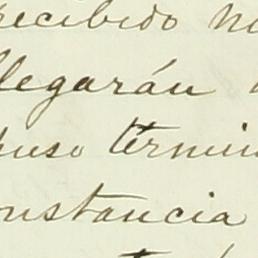 recibido
llegarán
puso termin
onstancia